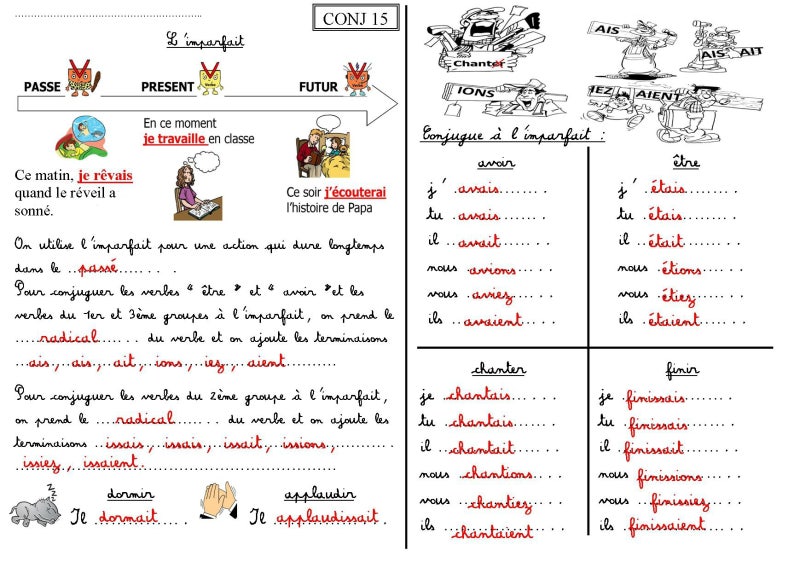 CONJ 15
L'imparfait
PASSE PRESENT FUTUR
Ce matin, je rêvais
quand le réveil a
sonné.
En ce moment
je travaille en classe
Ce soir j'écouterai
l'histoire de Papa
On utilise l'imparfait pour une action qui dure longtemps
dans le ..passé........ .
Pour conjuguer les verbes " être " et " avoir " et les
verbes du 1er et 3ème groupes à l'imparfait, on prend le
.....radical....... . du verbe et on ajoute les terminaisons
...ais., ..ais., ..ait, ..ions, ..iez, ..aient..........
Pour conjuguer les verbes du 2ème groupe à l'imparfait,
on prend le ....radical...... . du verbe et on ajoute les
terminaisons ..issais., .issais., .issait, .issions,.......... .
issiez , issaient
dormir
Il .dormait.... .
applaudir
Il .applaudissait. .
Chanter
AIS
AIS
AIT
IONS
IEZ
AIENT
Conjugue à l'imparfait :
avoir
j' .avais....... .
tu .avais....... .
il ..avait..... . .
nous .avions.... . .
vous ..aviez.... . .
ils ..avaient... . .
être
j' .étais...... . .
tu .étais..... . .
il ..était..... . .
nous .étions.... . .
vous ..étiez.... . .
ils .étaient.... . .
chanter
je .chantais.... . .
tu .chantais..... . .
il ..chantait.... . .
nous .chantions... . .
vous ...chantiez... . .
ils chantaient
finir
je .finissais..... . .
tu .finissais.... . .
il .finissait.... . .
nous .finissions.... . .
vous ..finissiez.... . .
ils .finissaient... . .